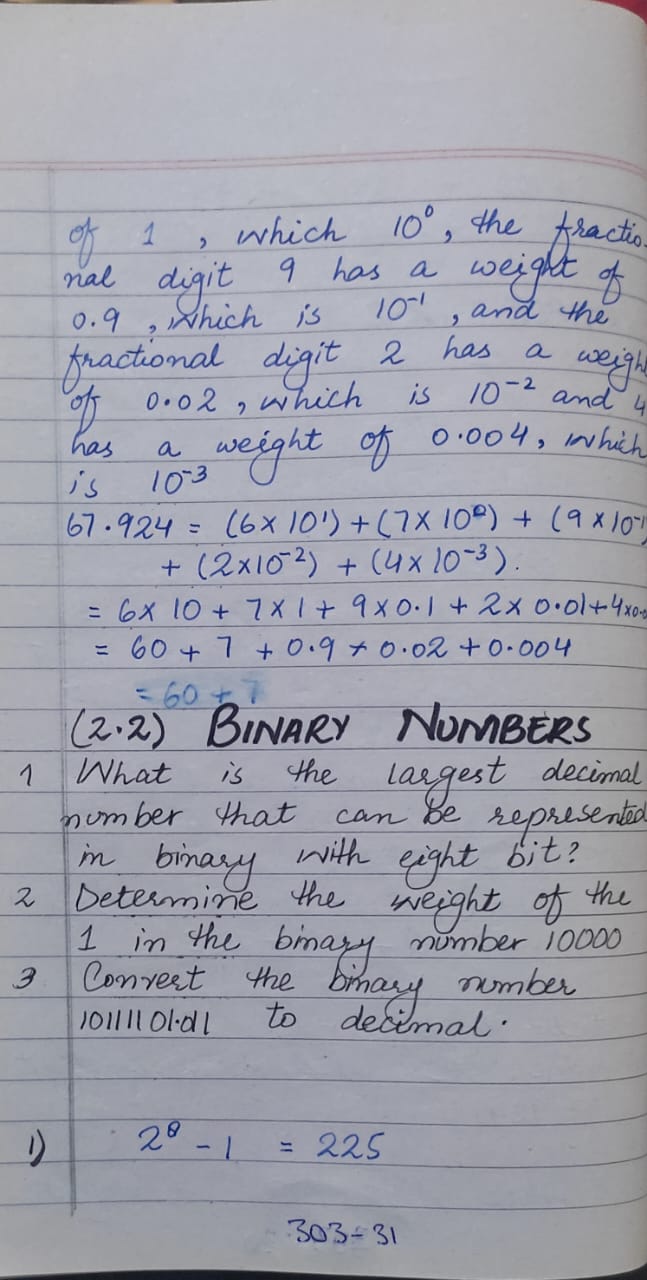 of 1 , which 10⁰, the fractio-
nal digit 9 has a weight of
0.9 , which is 10⁻¹ , and the
fractional digit 2 has a weight
of 0.02 , which is 10⁻² and 4
has a weight of 0.004, which
is 10⁻³
67.924 = (6 x 10¹) + (7 x 10⁰) + (9 x 10⁻¹)
+ (2x10⁻²) + (4 x 10⁻³).
= 6 x 10 + 7 x 1 + 9 x 0.1 + 2 x 0.01 + 4 x 0.0
= 60 + 7 + 0.9 + 0.02 + 0.004
= 60 + 7
(2.2) BINARY NUMBERS
1 What is the largest decimal
number that can be represented
in binary with eight bit?
2 Determine the weight of the
1 in the binary number 10000
3 Convert the binary number
10111101.011 to decimal.
1) 2⁸ - 1 = 225
303-31